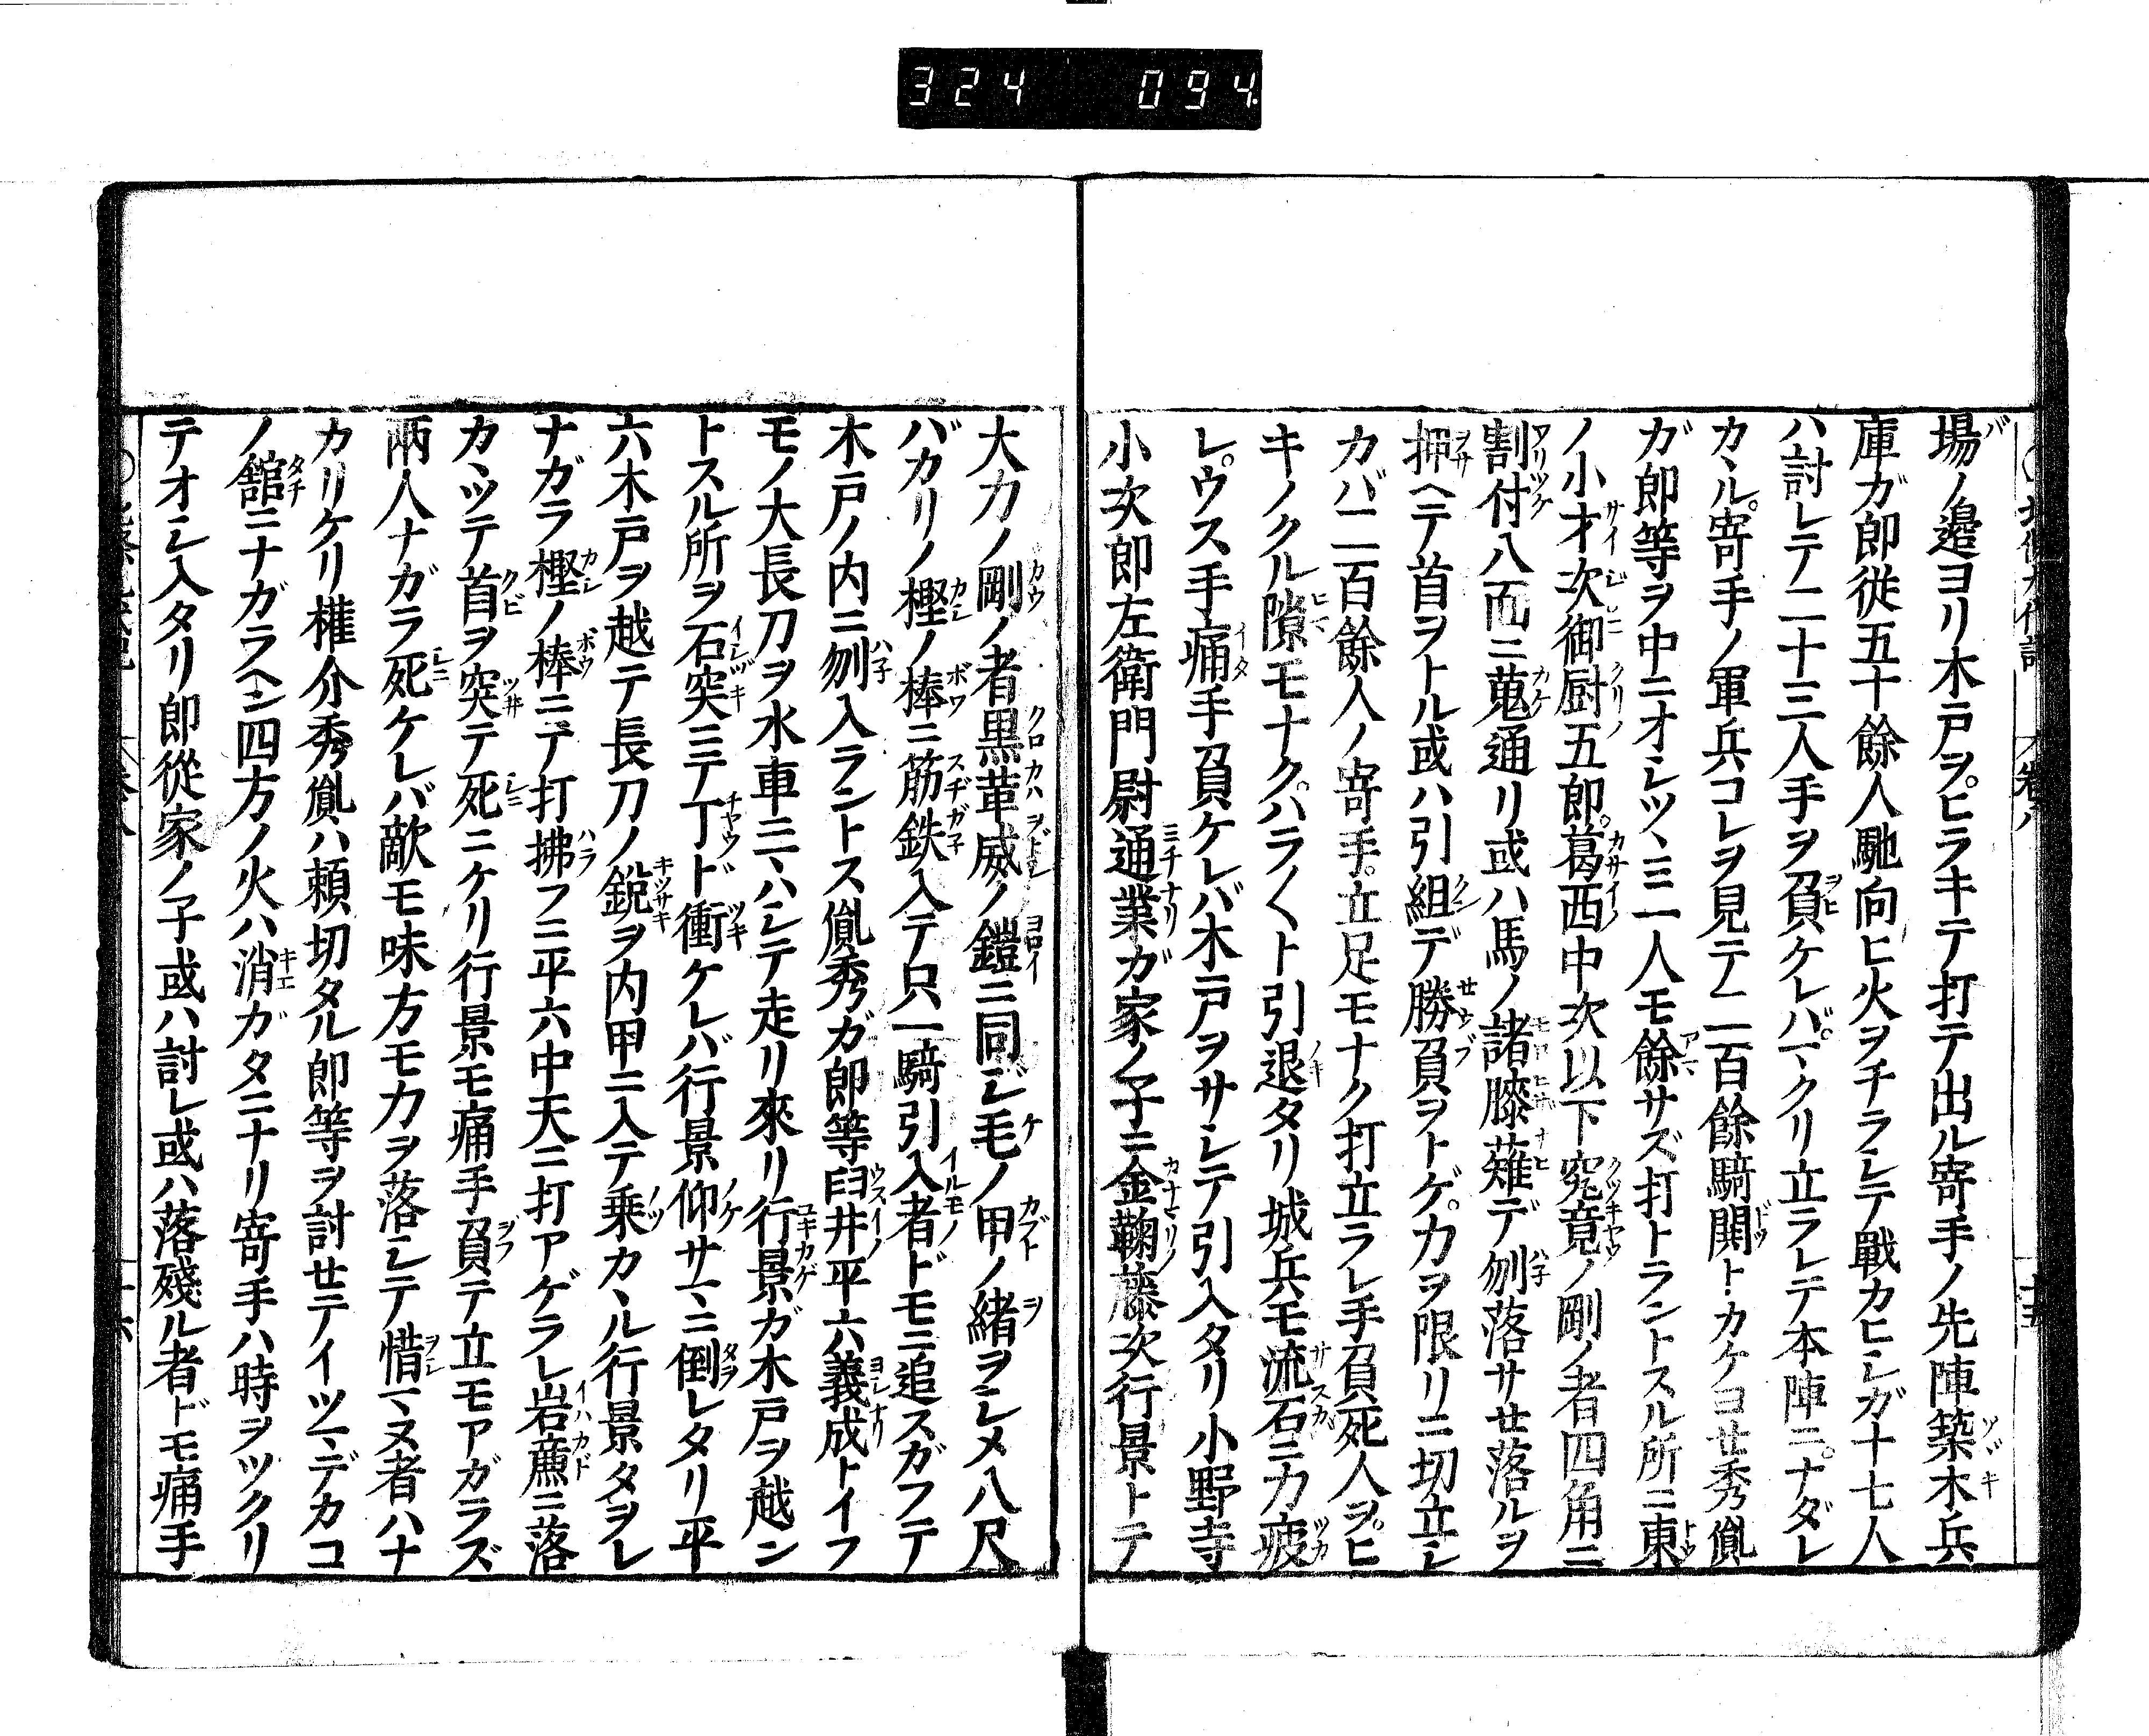 324 094
場ノ邉ヨリ木戸ヲヒラキテ打テ出ル寄手ノ先陣築木兵
庫ガ郎從五十餘人馳向ヒ火ヲチラシテ戰カヒシガ十七人
ハ討レテ二十三人手ヲ負ケレバマクリ立ラレテ本陣ニナダレ
カヽル寄手ノ軍兵コレヲ見テ二百餘騎閧トカケヨせ秀胤
ガ郎等ヲ中ニオシツヽミ一人モ餘サズ打トラントスル所ニ東
ノ小才次御厨五郎葛西中次以下究竟ノ剛ノ者四角ニ
割付八面ニ蒐通リ或ハ馬ノ諸膝薙デ刎落サせ落ルヲ
押ヘテ首ヲトル或ハ引組デ勝負ヲトゲ力ヲ限リニ切立シ
カバ二百餘人ノ寄手立足モナク打立ラレ手負死人ヲヒ
キノクル隙モナクハラ〱ト引退タリ城兵モ流石ニ力疲
レウス手痛手負ケレバ木戸ヲサシテ引入タリ小野寺
小次郎左衛門尉通業ガ家ノ子ニ金鞠藤次行景トテ
大力ノ剛ノ者黒革威ノ鎧ニ同ジ毛ノ甲ノ緒ヲシメ八尺
バカリノ樫ノ棒ニ筋鉄入テ只一騎引入者ドモニ追スガフテ
木戸ノ内ニ刎入ラントス胤秀ガ郎等臼井平六義成トイフ
モノ大長刀ヲ水車ニマハシテ走リ來リ行景ガ木戸ヲ越ン
トスル所ヲ石突ニテ丁ド衝ケレバ行景仰サマニ倒レタリ平
六木戸ヲ越テ長刀ノ鋭ヲ内甲ニ入テ乗カヽル行景タヲレ
ナガラ樫ノ棒ニテ打拂フニ平六中天ニ打アゲラレ岩廉ニ落
カヽツテ首ヲ突テ死ニケリ行景モ痛手負テ立モアガラズ
兩人ナガラ死ケレバ敵モ味方モ力ヲ落シテ惜マヌ者ハナ
カリケリ権介秀胤ハ頼切タル郎等ヲ討せテイツマデカコ
ノ舘ニナガラヘン四方ノ火ハ消ガタニナリ寄手ハ時ヲツクリ
テオシ入タリ郎從家ノ子或ハ討レ或ハ落殘ル者ドモ痛手